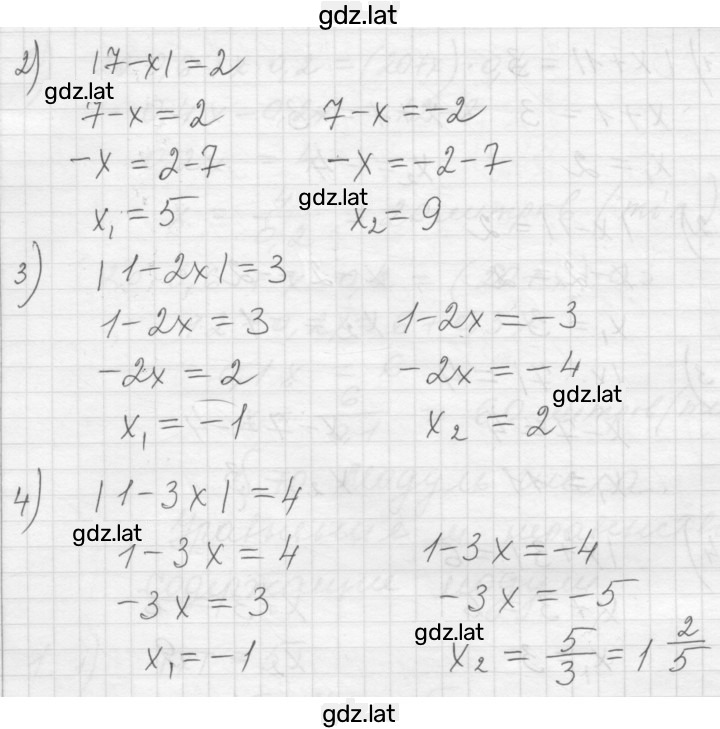 gdz.lat
2) |7-x|=2
gdz.lat
7-x=2 7-x=-2
-x=2-7 -x=-2-7
gdz.lat
x₁=5 x₂=9
3) |1-2x|=3
1-2x=3 1-2x=-3
-2x=2 -2x=-4
gdz.lat
x₁=-1 x₂=2
4) |1-3x|=4
gdz.lat
1-3x=4 1-3x=-4
-3x=3 -3x=-5
gdz.lat
x₁=-1 x₂=5/3=1 2/5
gdz.lat